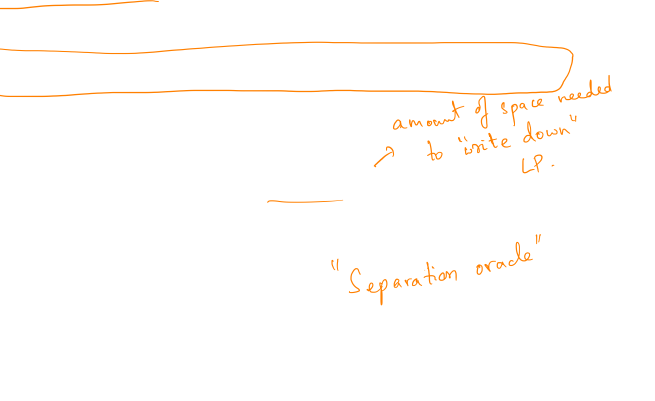 amount of space needed
to "write down"
LP.
"Separation oracle"